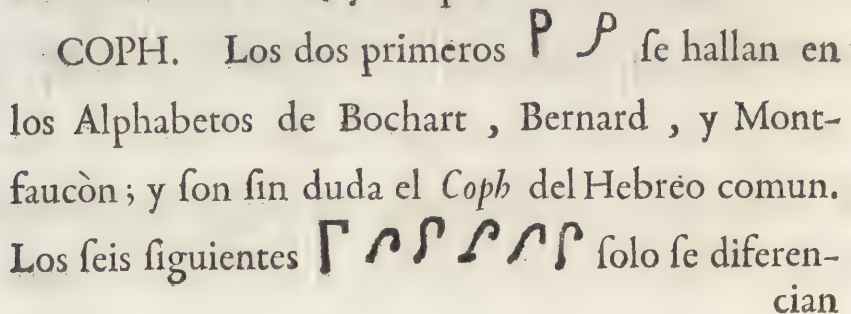 COPH. Los dos primeros ſe hallan en
los Alphabetos de Bochart , Bernard , y Mont-
faucòn ; y ſon ſin duda el Coph del Hebréo comun.
Los ſeis ſiguientes ſolo ſe diferen-
cian